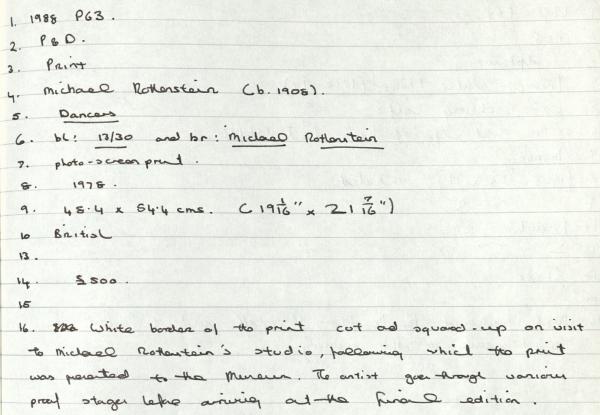 1. 1988 P63.
2. P & D.
3. Print
4. Michael Rothenstein (b. 1908).
5. Dancers
6. bl: 13/30 and br: Michael Rothenstein
7. photo-screen print.
8. 1978.
9. 48.4 x 54.4 cms. (19 1/16" x 21 7/16")
10 British
13.
14. £500.
15
16. White border of the print cut and squared-up on visit
to Michael Rothenstein's studio, following which the print
was presented to the Museum. The artist goes through various
proof stages before arriving at the final edition.